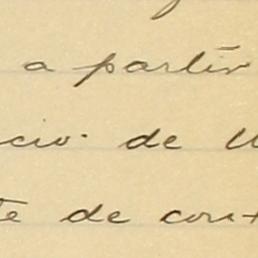 a partir
cio. de
te de cont